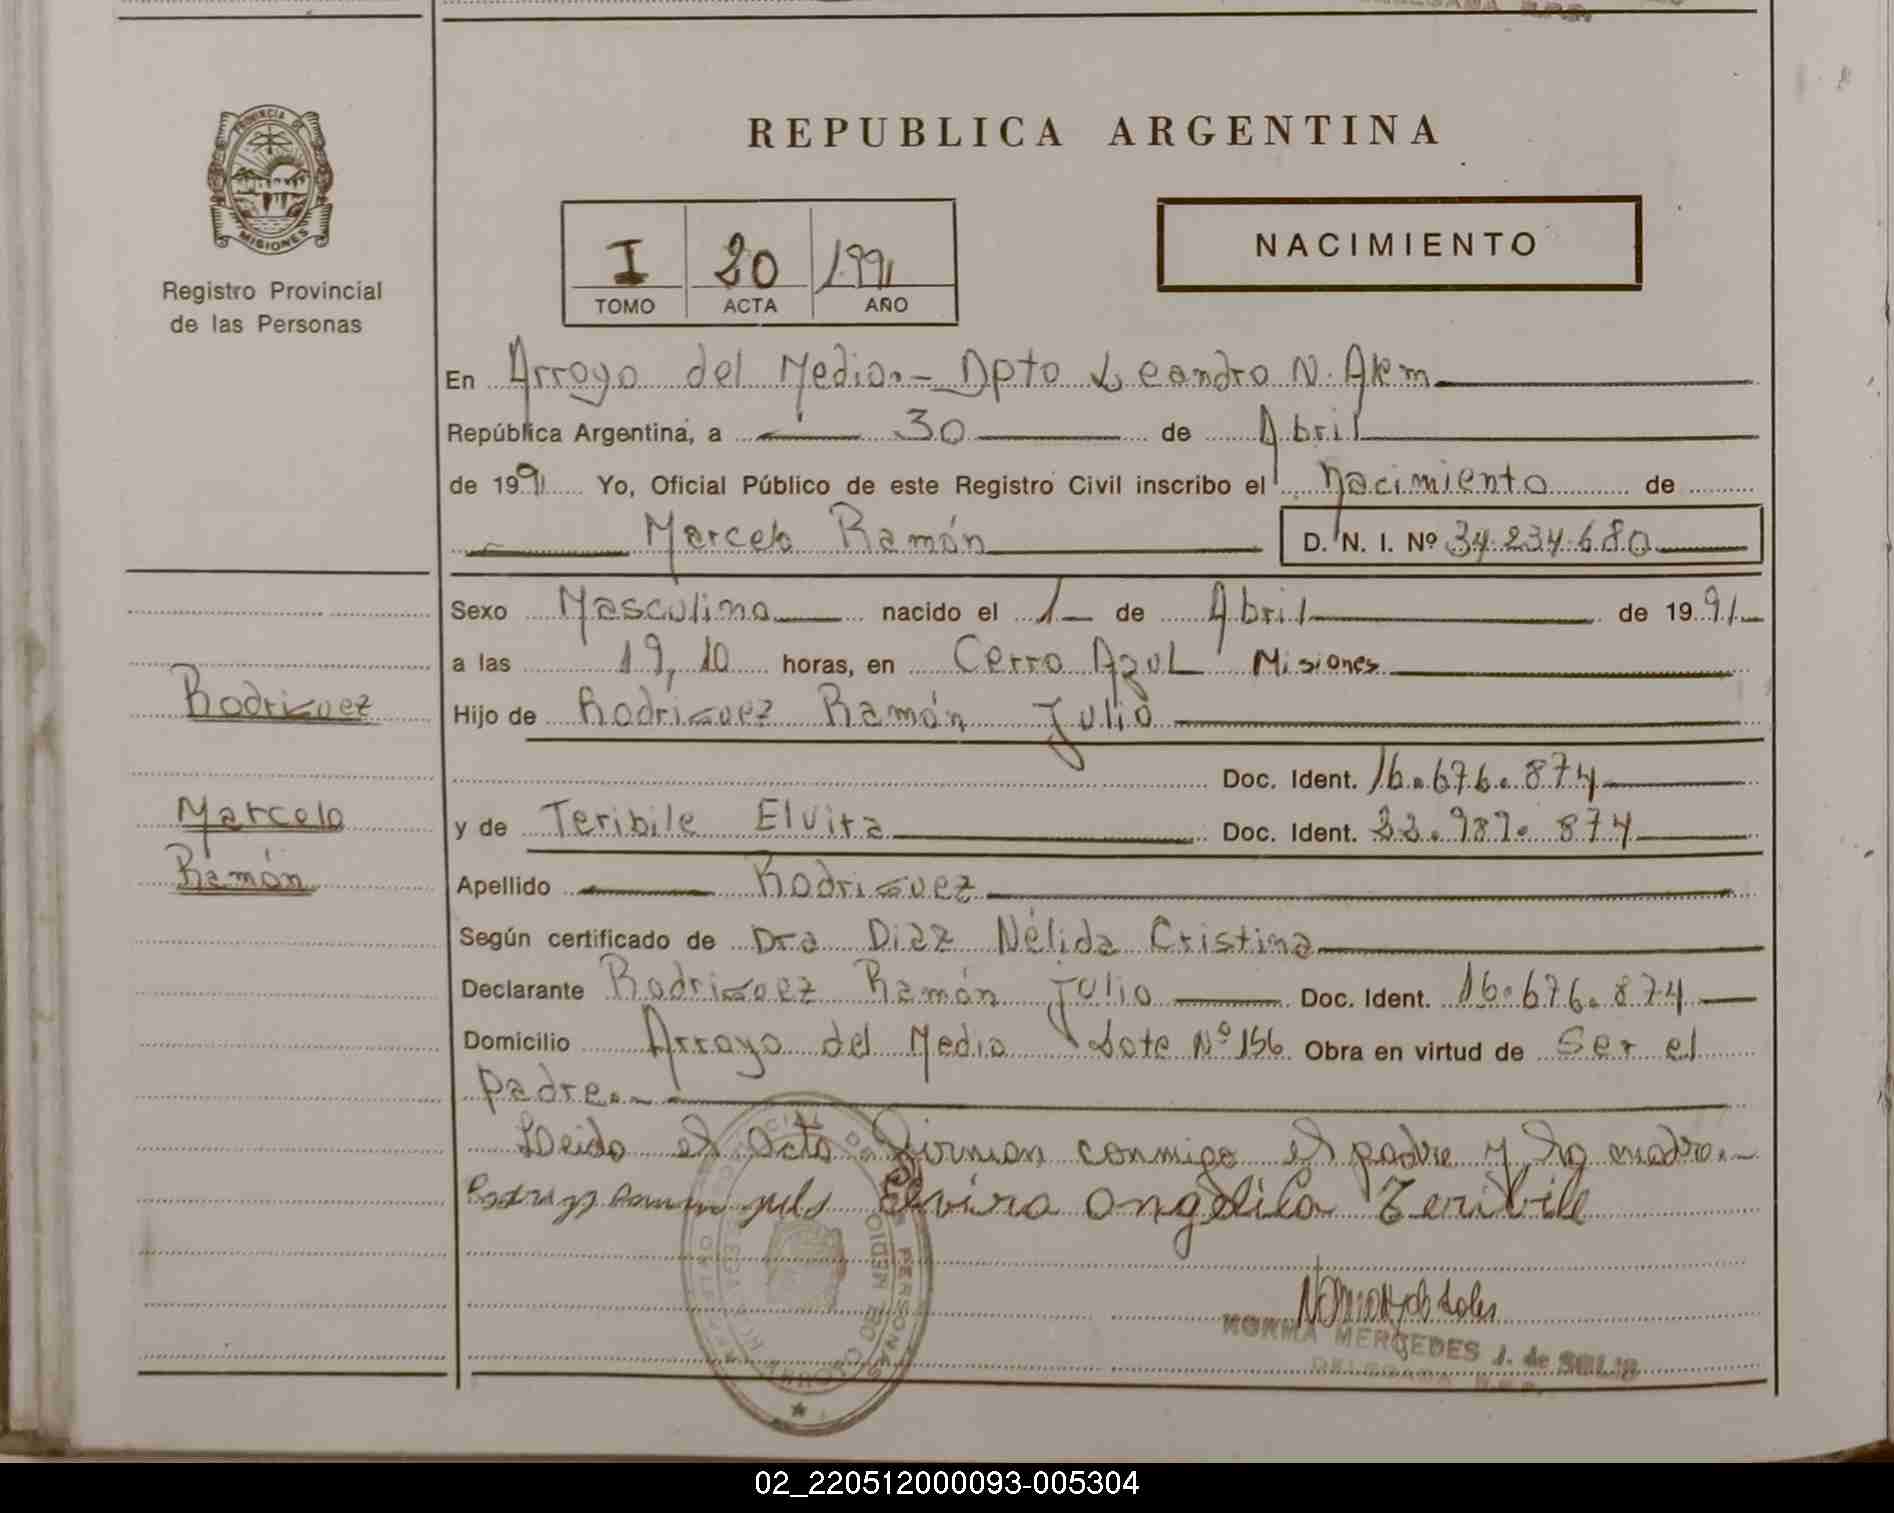 PROVINCIA DE
MISIONES
Registro Provincial
de las Personas
REPUBLICA ARGENTINA
I 20 1991
TOMO ACTA AÑO
NACIMIENTO
En Arroyo del Medio.- Dpto Leandro N. Alem
República Argentina, a 30 de Abril
de 1991 Yo, Oficial Público de este Registro Civil inscribo el Nacimiento de
Marcelo Ramón D. N. I. Nº 34.234.680
Sexo Masculino nacido el 1 de Abril de 1991
a las 19,10 horas, en Cerro Azul Misiones
Rodriguez
Hijo de Rodriguez Ramón Julio
Doc. Ident. 16.676.874
Marcelo
y de Teribile Elvira Doc. Ident. 22.987.874
Ramón
Apellido Rodriguez
Según certificado de Dra Diaz Nélida Cristina
Declarante Rodriguez Ramón Julio Doc. Ident. 16.676.874
Domicilio Arroyo del Medio Lote Nº 156 Obra en virtud de Ser el
padre.-
Leido el acta firman conmigo el padre y la madre.-
Elvira Angelica Teribile
NORMA MERCEDES J. de
DELEGADA R.P.P.
02_220512000093-005304